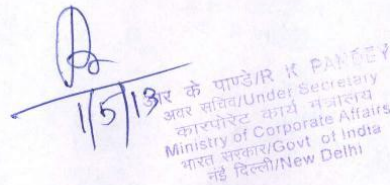 1/5/13
आर के पाण्डे/R K PANDEY
अवर सचिव/Under Secretary
कारपोरेट कार्य मंत्रालय
Ministry of Corporate Affairs
भारत सरकार/Govt of India
नई दिल्ली/New Delhi